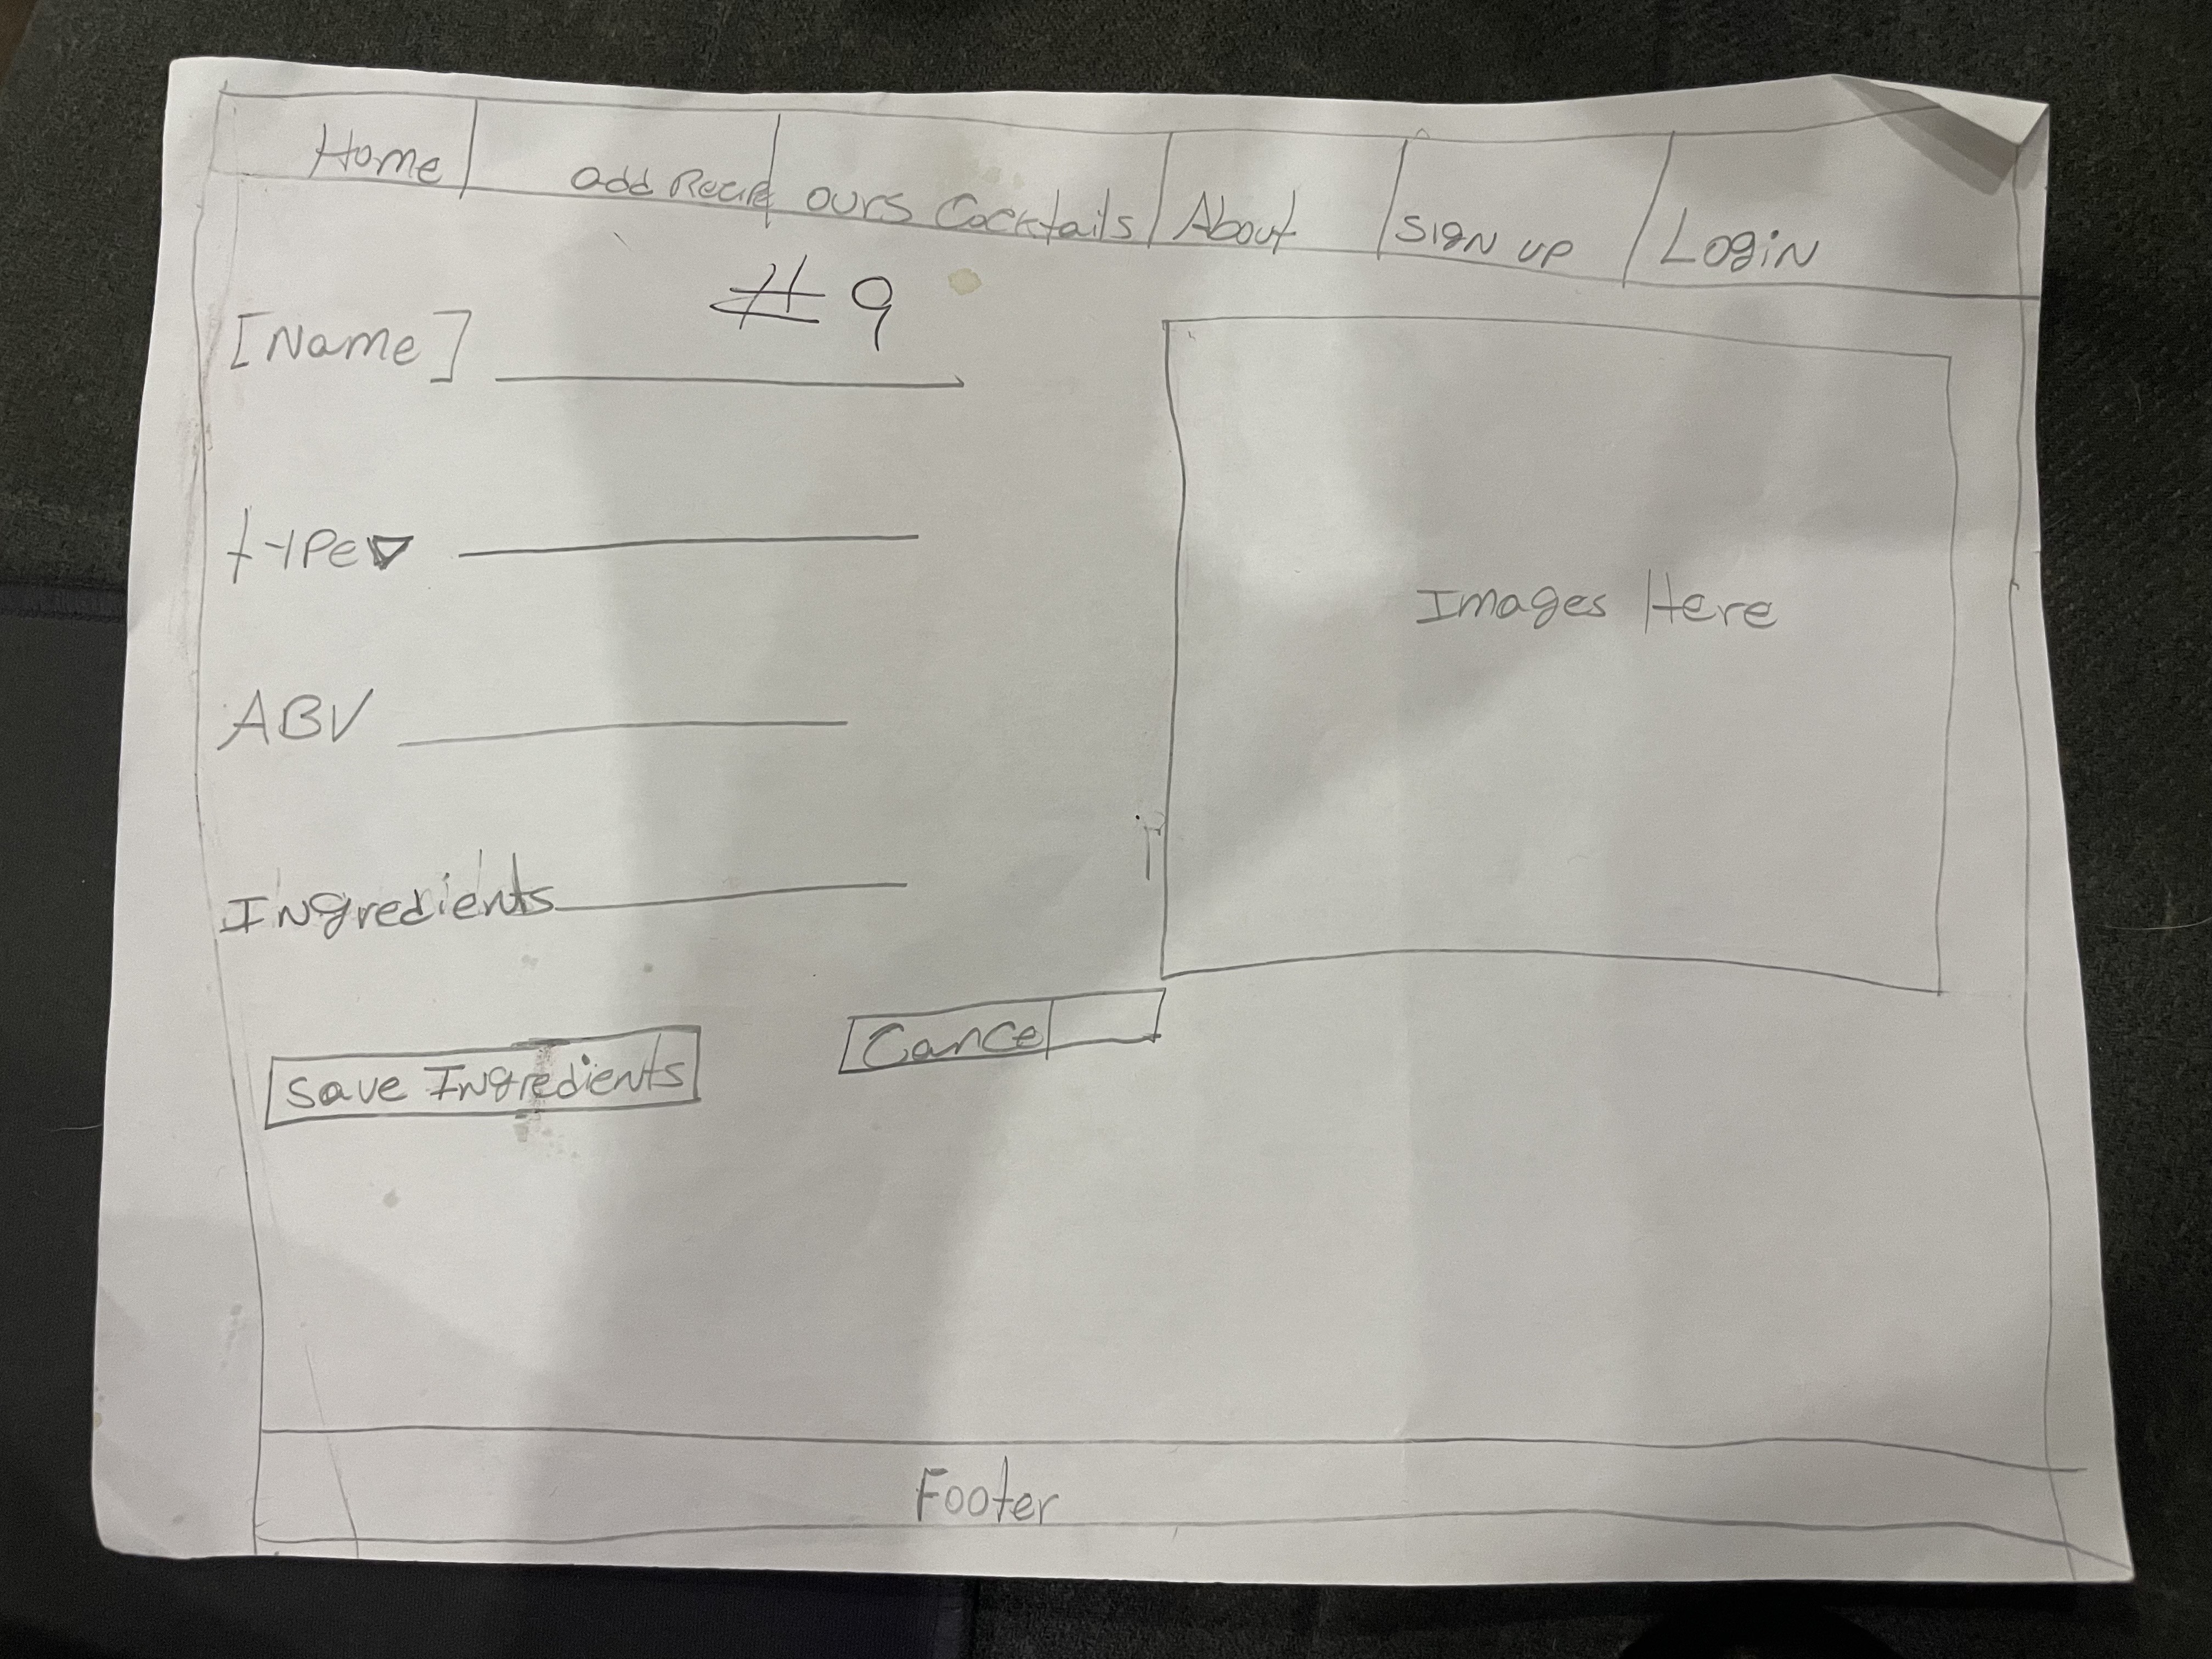 Home add Recipe ours Cocktails About Sign up Login
#9
[Name]
type
Images Here
ABV
Ingredients
Save Ingredients Cancel
Footer